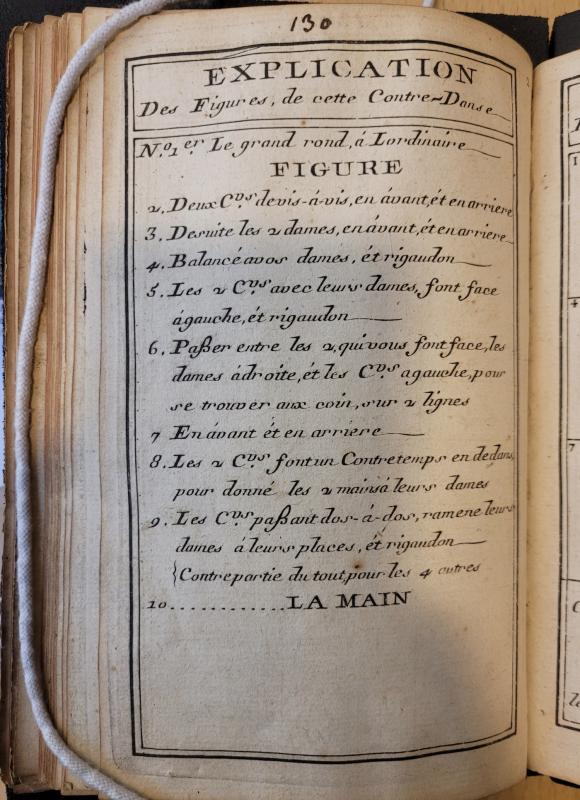 130
EXPLICATION
Des Figures, de cette Contre-Danse
N.º 1.er Le grand rond, á Lordinaire
FIGURE
2. Deux C.vrs de vis-á-vis, en ávant, ét en arriere
3. De suite les 2 dames, en ávant, ét en arriere
4. Balancé a vos dames, ét rigaudon
5. Les 2 C.vrs avec leurs dames, font face
á gauche, ét rigaudon
6. Paßer entre les 2, qui vous font face, les
dames ádroite, ét les C.vrs a gauche, pour
se trouver aux coin, sur 2 lignes
7 En ávant ét en arriere
8. Les 2 C.vrs font un Contretemps en dedans,
pour donné les 2 mains á leurs dames
9. Les C.vrs paßant dos-á-dos, ramene leurs
dames á leurs places, ét rigaudon
{Contre partie du tout, pour les 4 autres
10............LA MAIN